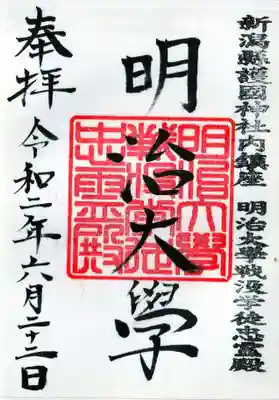 新潟縣護國神社内鎮座 明治大学戦没学徒忠霊殿
明治大學
奉拝
令和二年六月二十二日
明治大學
忠靈殿